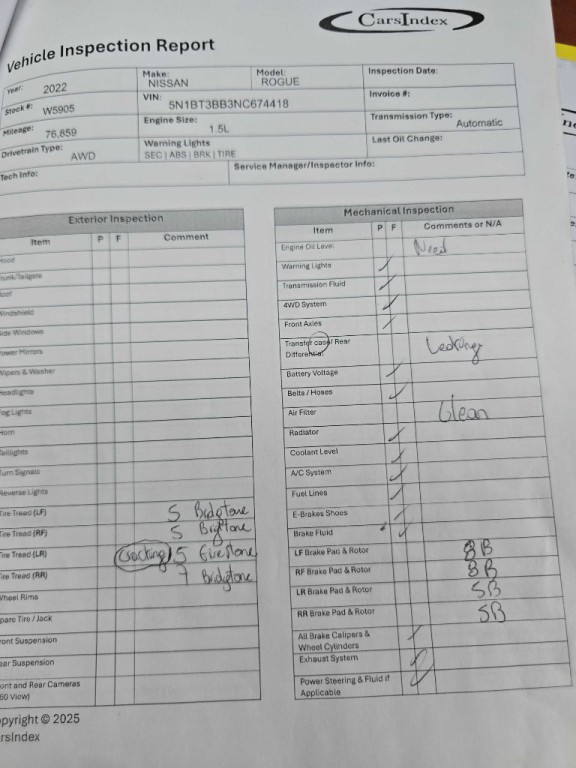 CarsIndex
Vehicle Inspection Report
Year: 2022
Make: NISSAN
Model: ROGUE
Inspection Date:
Stock #: W5905
VIN: 5N1BT3BB3NC674418
Invoice #:
Mileage: 76,859
Engine Size: 1.5L
Transmission Type: Automatic
Drivetrain Type: AWD
Warning Lights
SEC | ABS | BRK | TIRE
Last Oil Change:
Tech Info:
Service Manager/Inspector Info:
Exterior Inspection
Item P F Comment
Hood
Trunk/Tailgate
Roof
Windshield
Side Windows
Power Mirrors
Wipers & Washer
Headlights
Fog Lights
Horn
Taillights
Turn Signals
Reverse Lights
Tire Tread (LF) 5
Tire Tread (RF) 5
Tire Tread (LR) Cracking 5
Tire Tread (RR) 7
Wheel Rims
Spare Tire / Jack
Front Suspension
Rear Suspension
Front and Rear Cameras
(360 View)
Mechanical Inspection
Item P F Comments or N/A
Engine Oil Level Need
Warning Lights ✓
Transmission Fluid ✓
4WD System ✓
Front Axles ✓
Transfer case/ Rear
Differential Leaking
Battery Voltage ✓
Belts / Hoses ✓
Air Filter Clean
Radiator ✓
Coolant Level ✓
A/C System ✓
Fuel Lines ✓
E-Brakes Shoes ✓
Brake Fluid ✓
LF Brake Pad & Rotor 8B
RF Brake Pad & Rotor 8B
LR Brake Pad & Rotor 5B
RR Brake Pad & Rotor 5B
All Brake Calipers &
Wheel Cylinders ✓
Exhaust System ✓
Power Steering & Fluid if
Applicable ✓
Copyright © 2025
CarsIndex